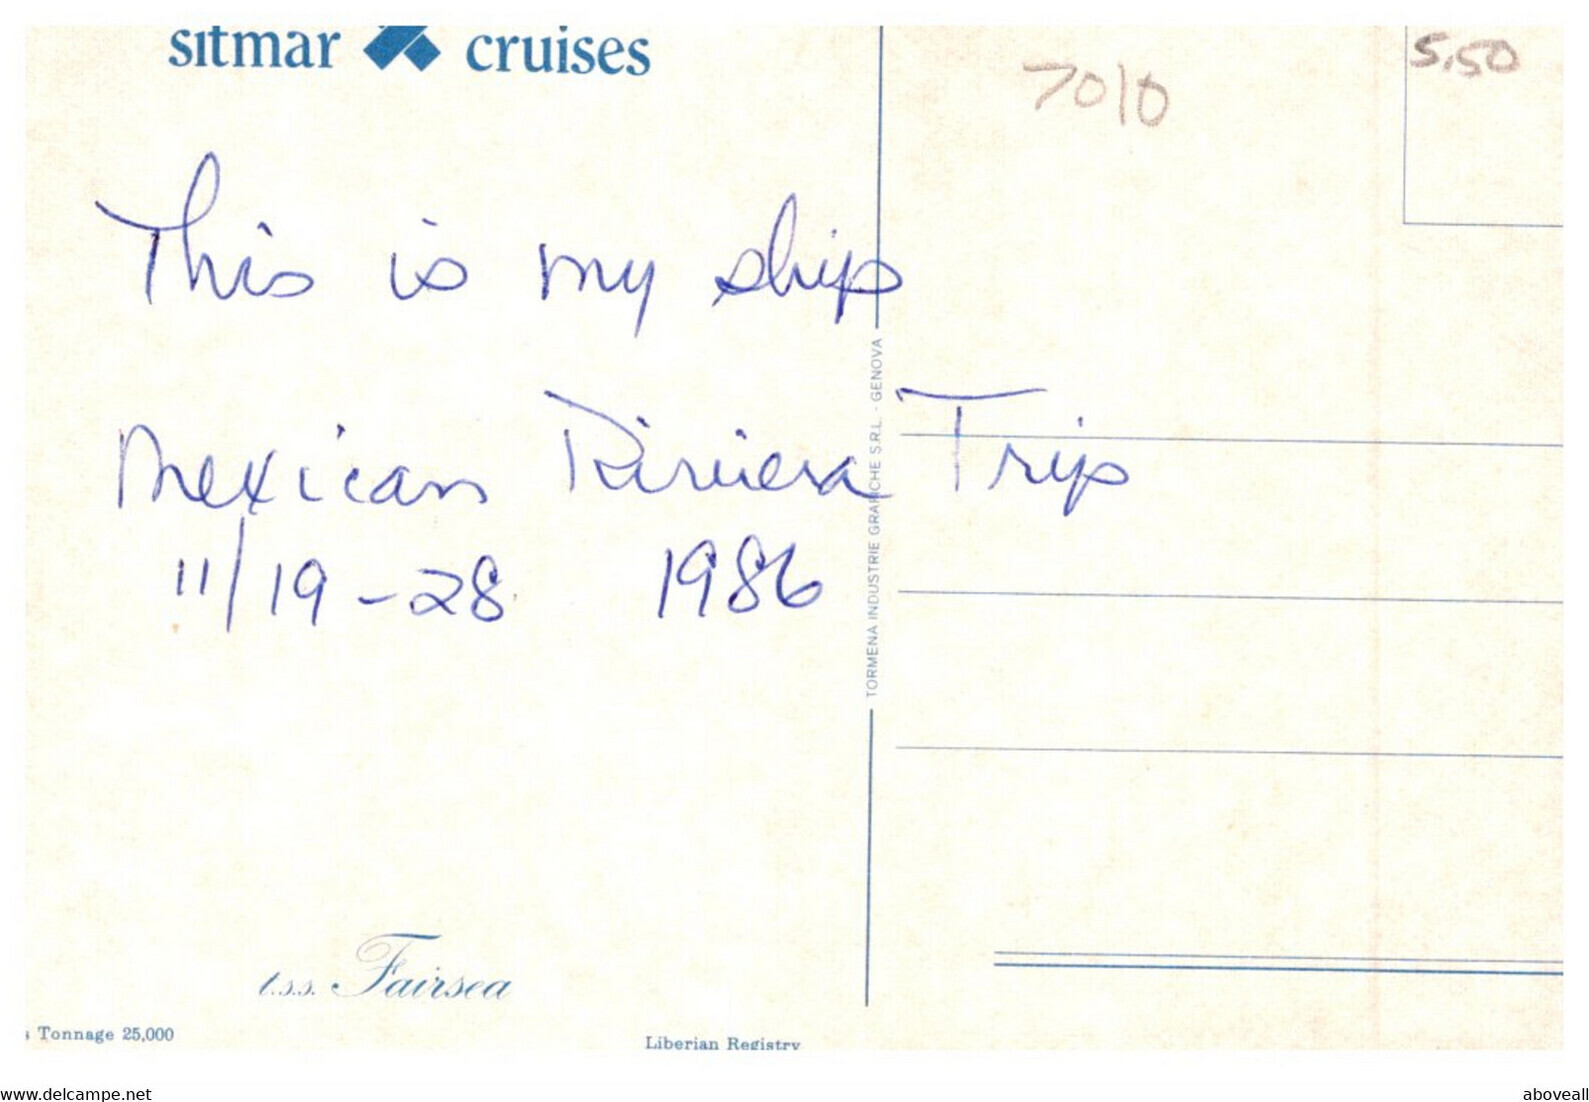 sitmar cruises
7010
5.50
This is my ship
Mexican Riviera Trip
11/19-28 1986
TORMENA INDUSTRIE GRAFICHE S.R.L. - GENOVA
t.s.s. Fairsea
s Tonnage 25,000
Liberian Registry
www.delcampe.net
aboveall